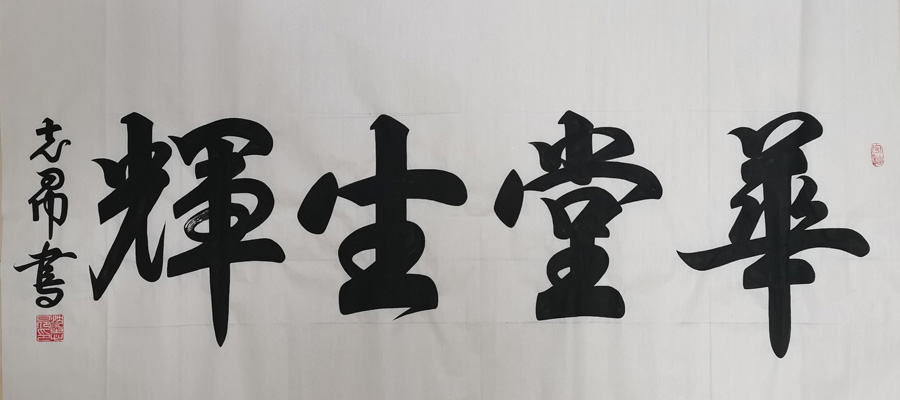 華堂生輝
志昂書